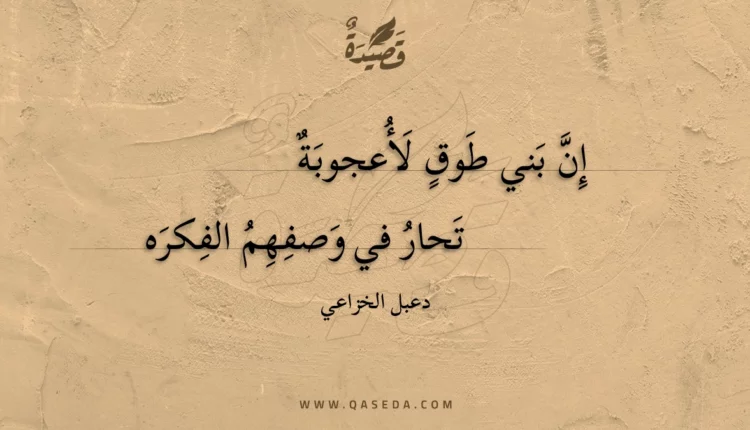 قَصِيدَةٌ
إِنَّ بَني طَوقٍ لَأُعجوبَةٌ
تَحارُ في وَصفِهِمُ الفِكرَه
دعبل الخزاعي
WWW.QASEDA.COM